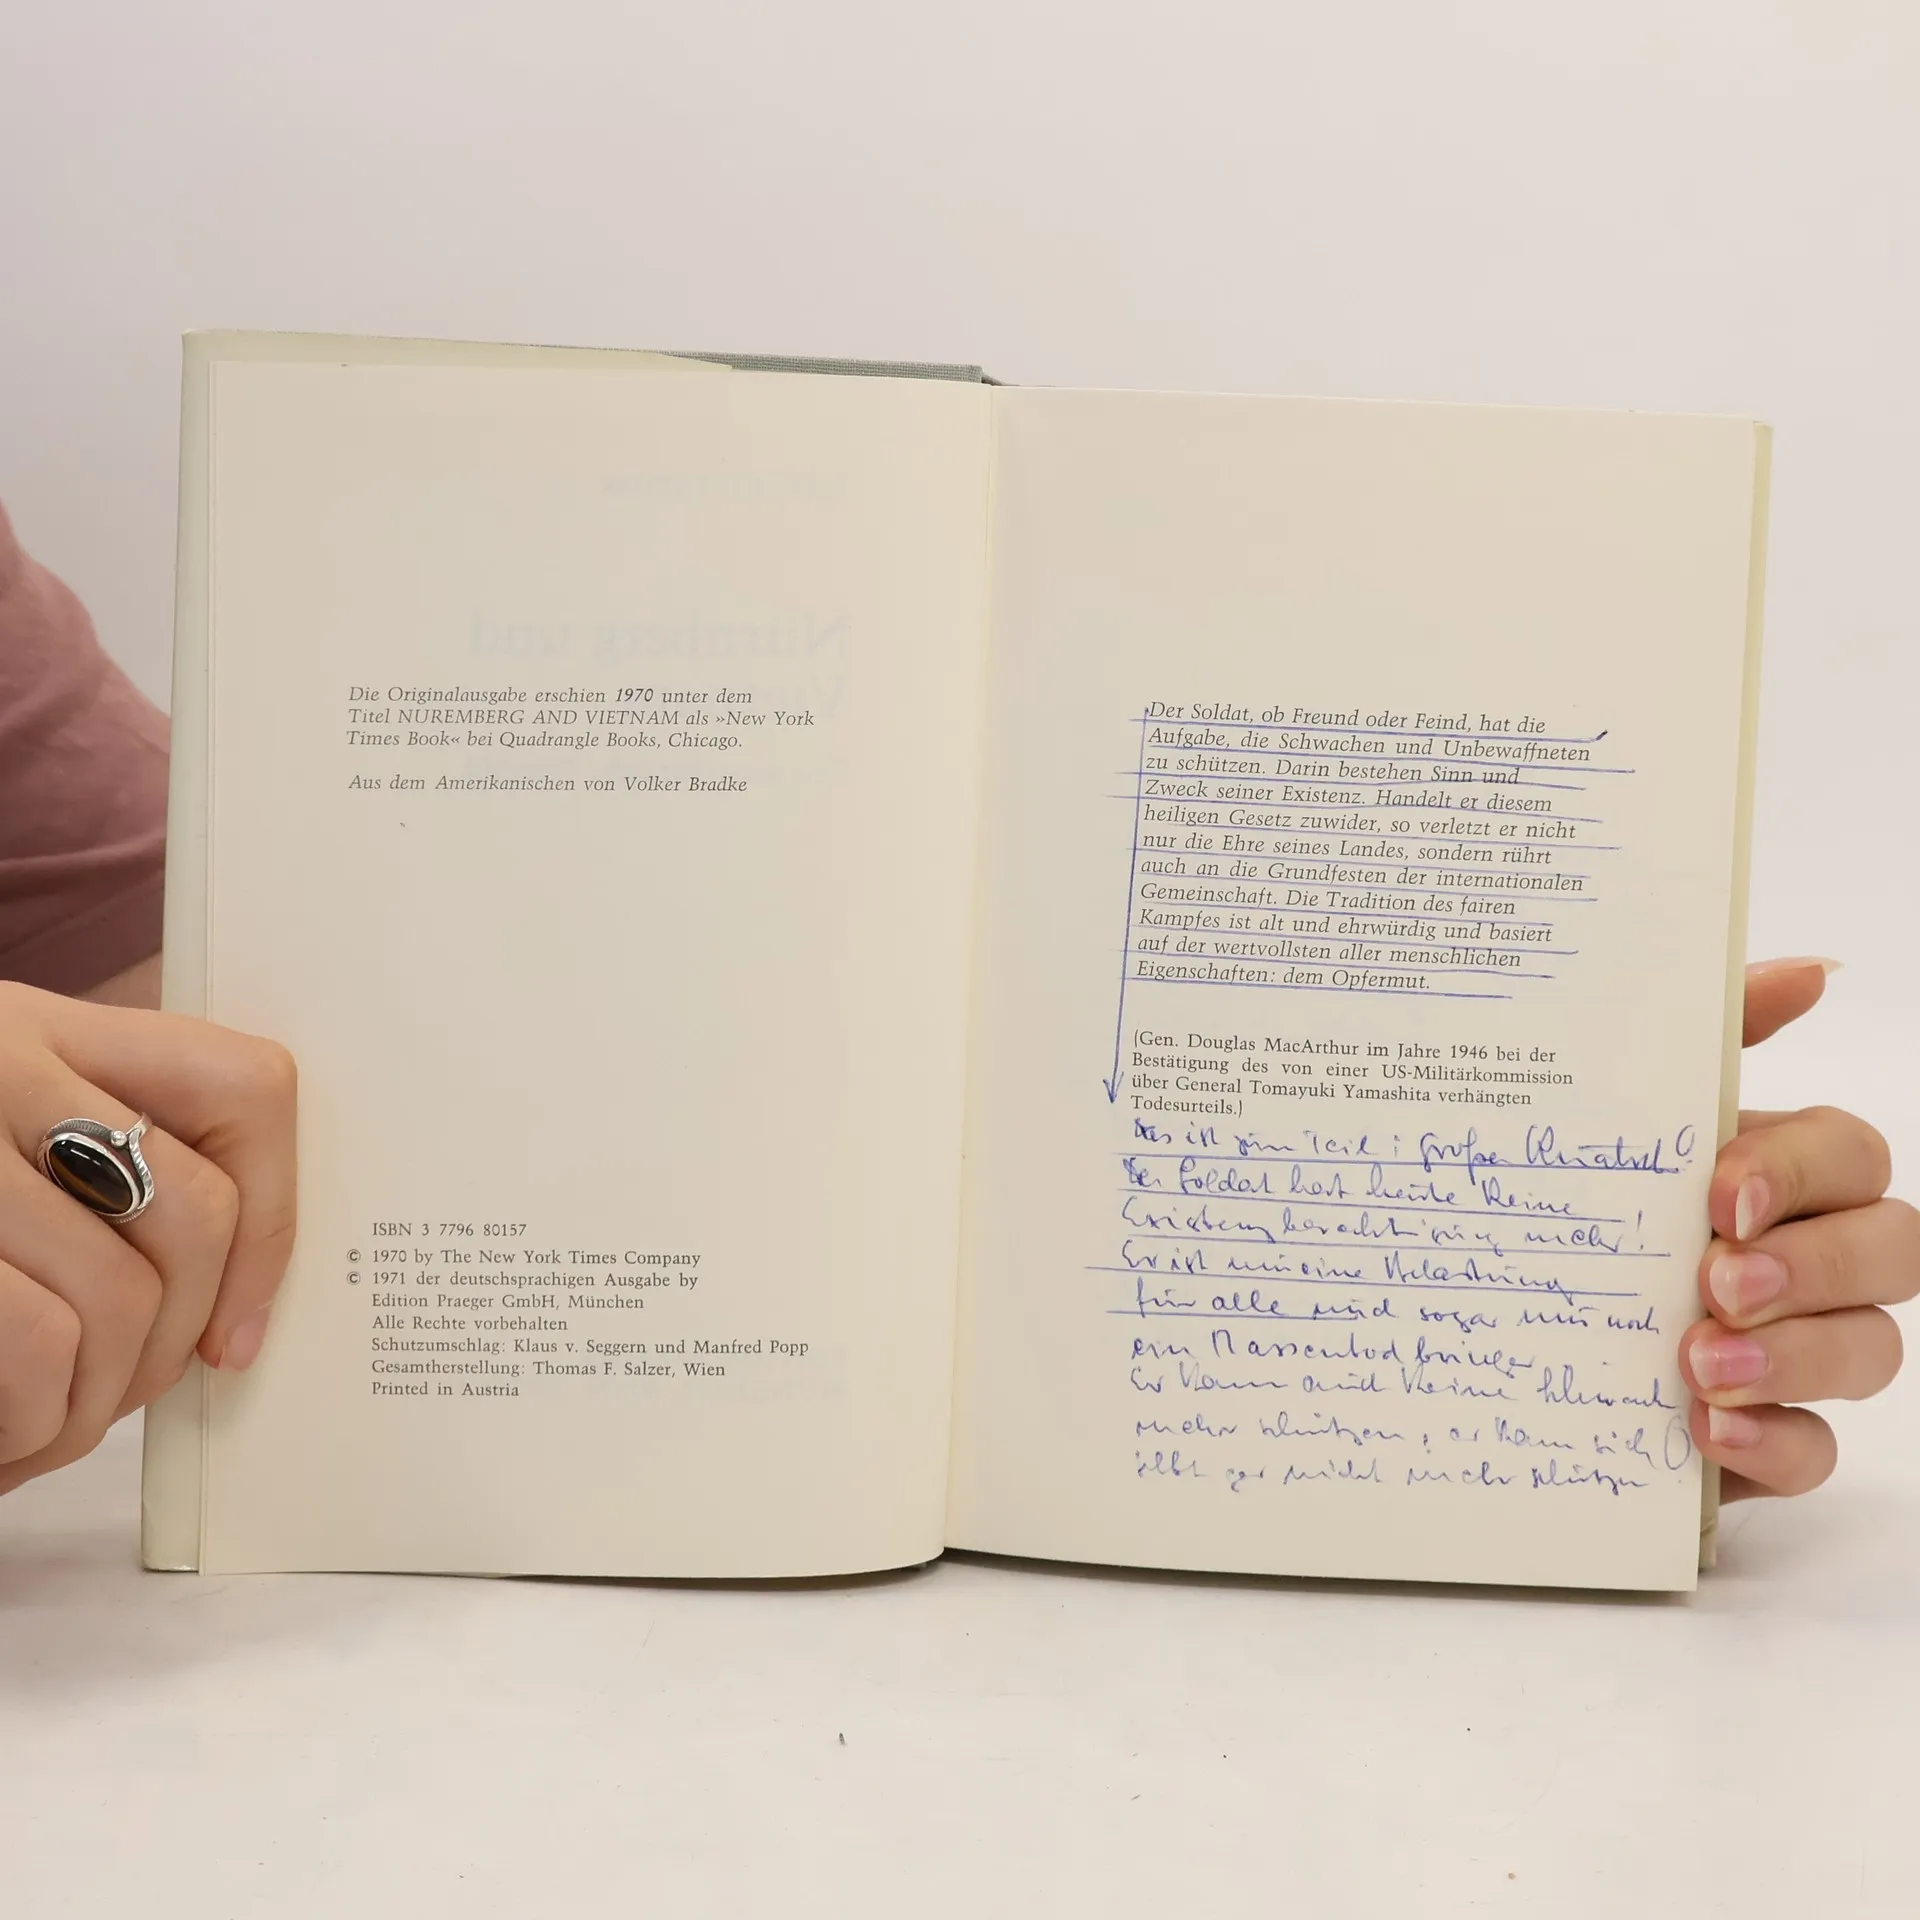 Die Originalausgabe erschien 1970 unter dem
Titel NUREMBERG AND VIETNAM als »New York
Times Book« bei Quadrangle Books, Chicago.
Aus dem Amerikanischen von Volker Bradke
ISBN 3 7796 80157
© 1970 by The New York Times Company
© 1971 der deutschsprachigen Ausgabe by
Edition Praeger GmbH, München
Alle Rechte vorbehalten
Schutzumschlag: Klaus v. Seggern und Manfred Popp
Gesamtherstellung: Thomas F. Salzer, Wien
Printed in Austria
Der Soldat, ob Freund oder Feind, hat die
Aufgabe, die Schwachen und Unbewaffneten
zu schützen. Darin bestehen Sinn und
Zweck seiner Existenz. Handelt er diesem
heiligen Gesetz zuwider, so verletzt er nicht
nur die Ehre seines Landes, sondern rührt
auch an die Grundfesten der internationalen
Gemeinschaft. Die Tradition des fairen
Kampfes ist alt und ehrwürdig und basiert
auf der wertvollsten aller menschlichen
Eigenschaften: dem Opfermut.
(Gen. Douglas MacArthur im Jahre 1946 bei der
Bestätigung des von einer US-Militärkommission
über General Tomayuki Yamashita verhängten
Todesurteils.)
Das ist zum Teil : großer
Der Soldat hat heute keine
Existenzberechtigung mehr!
Er ist nur eine Belastung
für alle und sogar nur noch
ein Massentod
Er kann auch keine Schwachen
mehr schützen, er kann sich
selbst gar nicht mehr schützen!